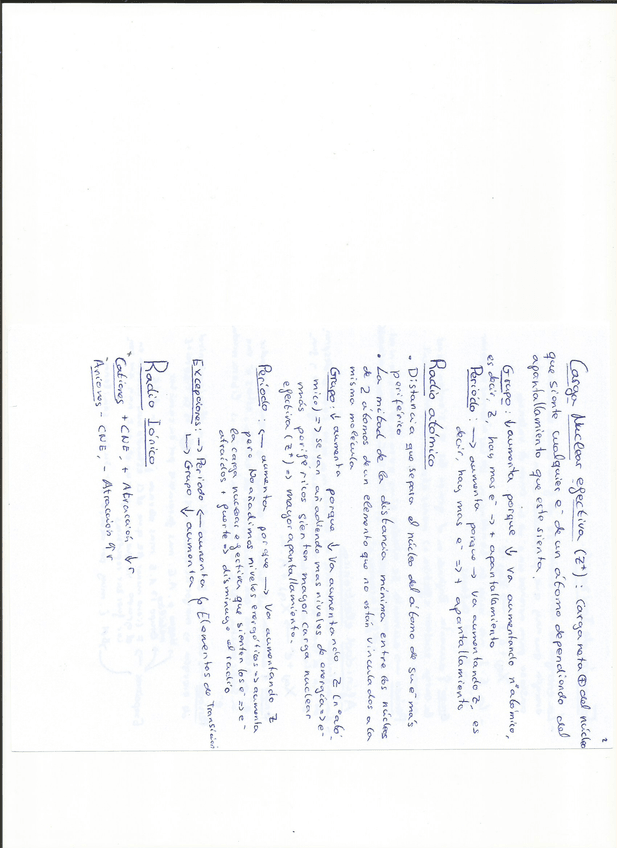 2
Carga Nuclear efectiva (Z*): Carga neta ⊕ del núcleo
que siente cualquier e⁻ de un átomo dependiendo del
apantallamiento que este sienta.
Grupo: ↓ aumenta porque ↓ va aumentando nº atómico,
es decir, Z, hay mas e⁻ → + apantallamiento
Periodo: → aumenta porque → va aumentando Z, es
decir, hay mas e⁻ => + apantallamiento
Radio atómico
• Distancia que separa el núcleo del átomo de su e⁻ más
periférico
• La mitad de la distancia mínima entre los núcleos
de 2 átomos de un elemento que no están vinculados a la
misma molécula
Grupo: ↓ aumenta porque ↓ va aumentando Z (nº ató-
mico) => se van añadiendo mas niveles de energía => e⁻
más periféricos sienten mayor carga nuclear
efectiva (Z*) => mayor apantallamiento.
Periodo: ← aumenta porque → va aumentando Z
pero No añadimos niveles energéticos => aumenta
la carga nuclear efectiva que sienten los e⁻ => e⁻
atraídos + fuerte => disminuye el radio
Excepciones: → Periodo ← aumenta Elementos de Transición
↳ Grupo ↓ aumenta
Radio Iónico
⁺Cationes + CNE, + Atracción, ↓r
⁻Aniones - CNE, - Atracción ↑r